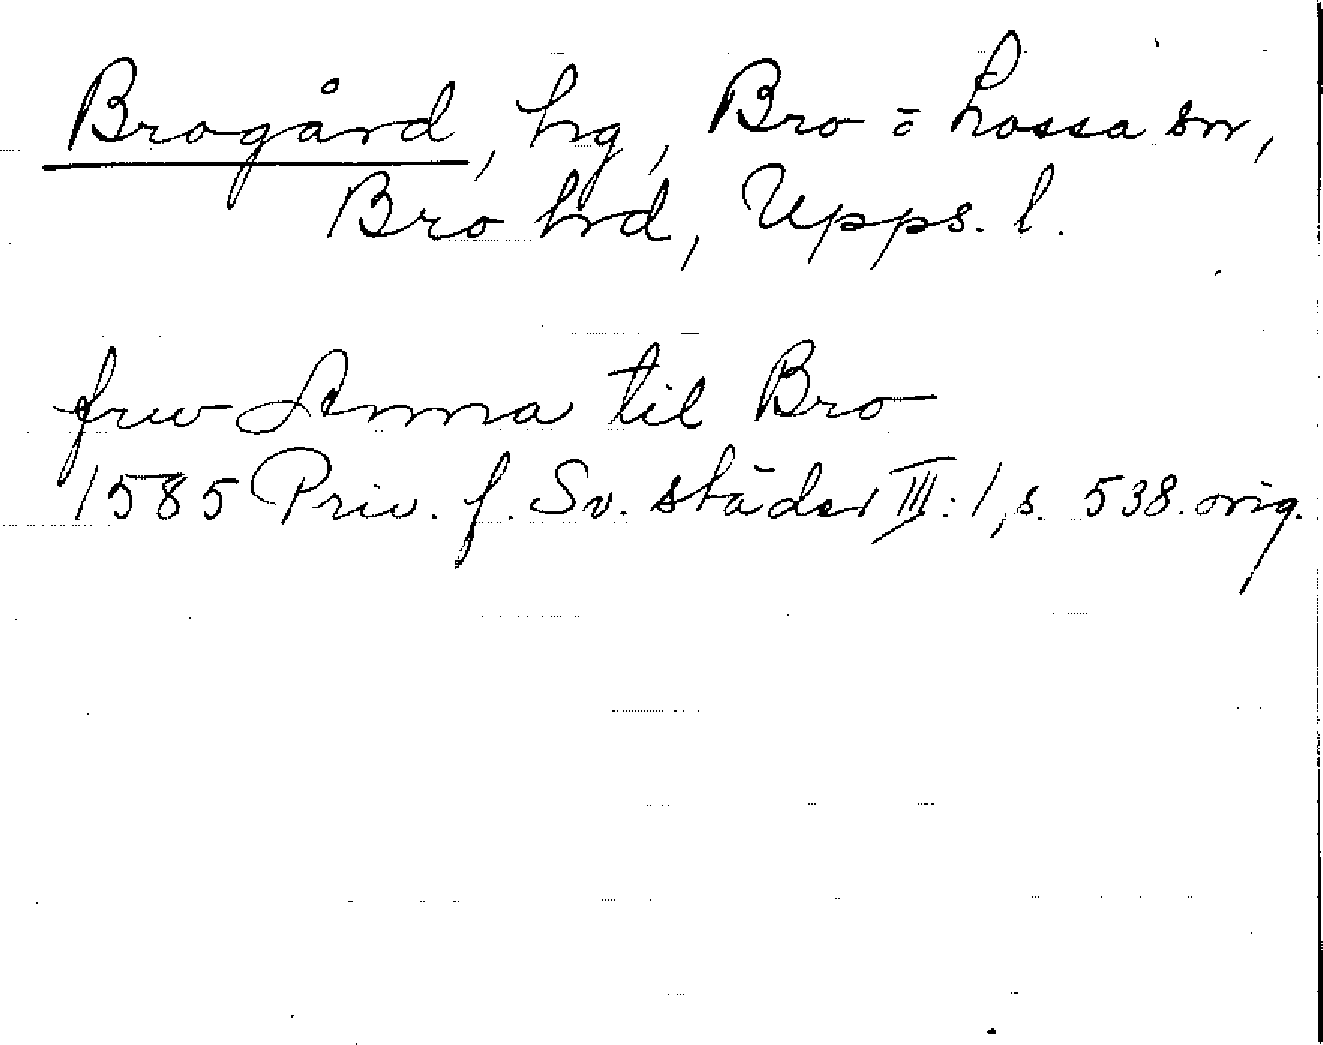 Brogård, hg, Bro o Lossa snr,
Bro hrd, Upps. l.
frw Anna til Bro
1585 Priv. f. Sv. städer III:1, s. 538. orig.